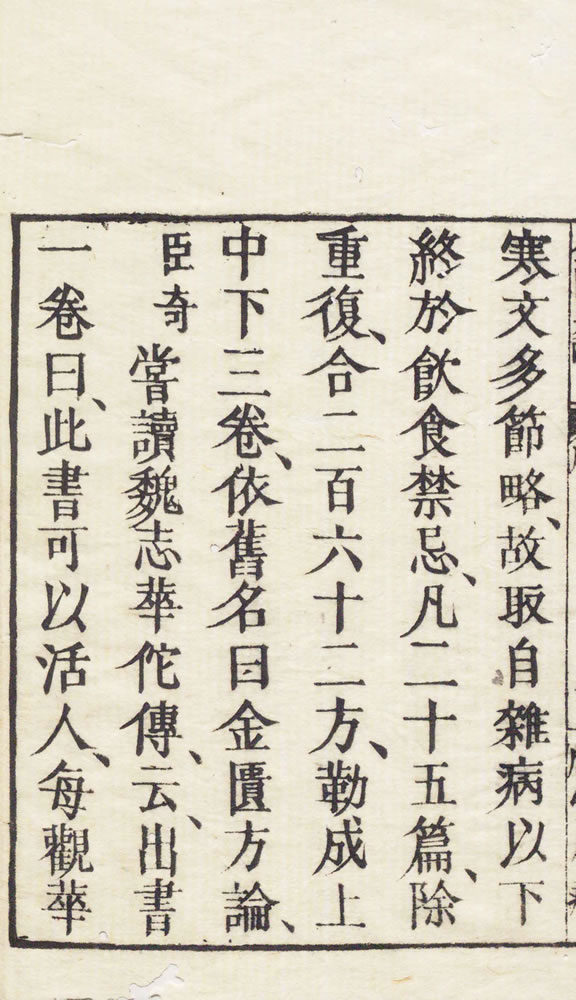 寒文多節略、故取自雜病以下
終於飲食禁忌、凡二十五篇、除
重復、合二百六十二方、勒成上
中下三卷、依舊名曰金匱方論、
臣奇嘗讀魏志華佗傳、云、出書
一卷曰、此書可以活人、每觀華